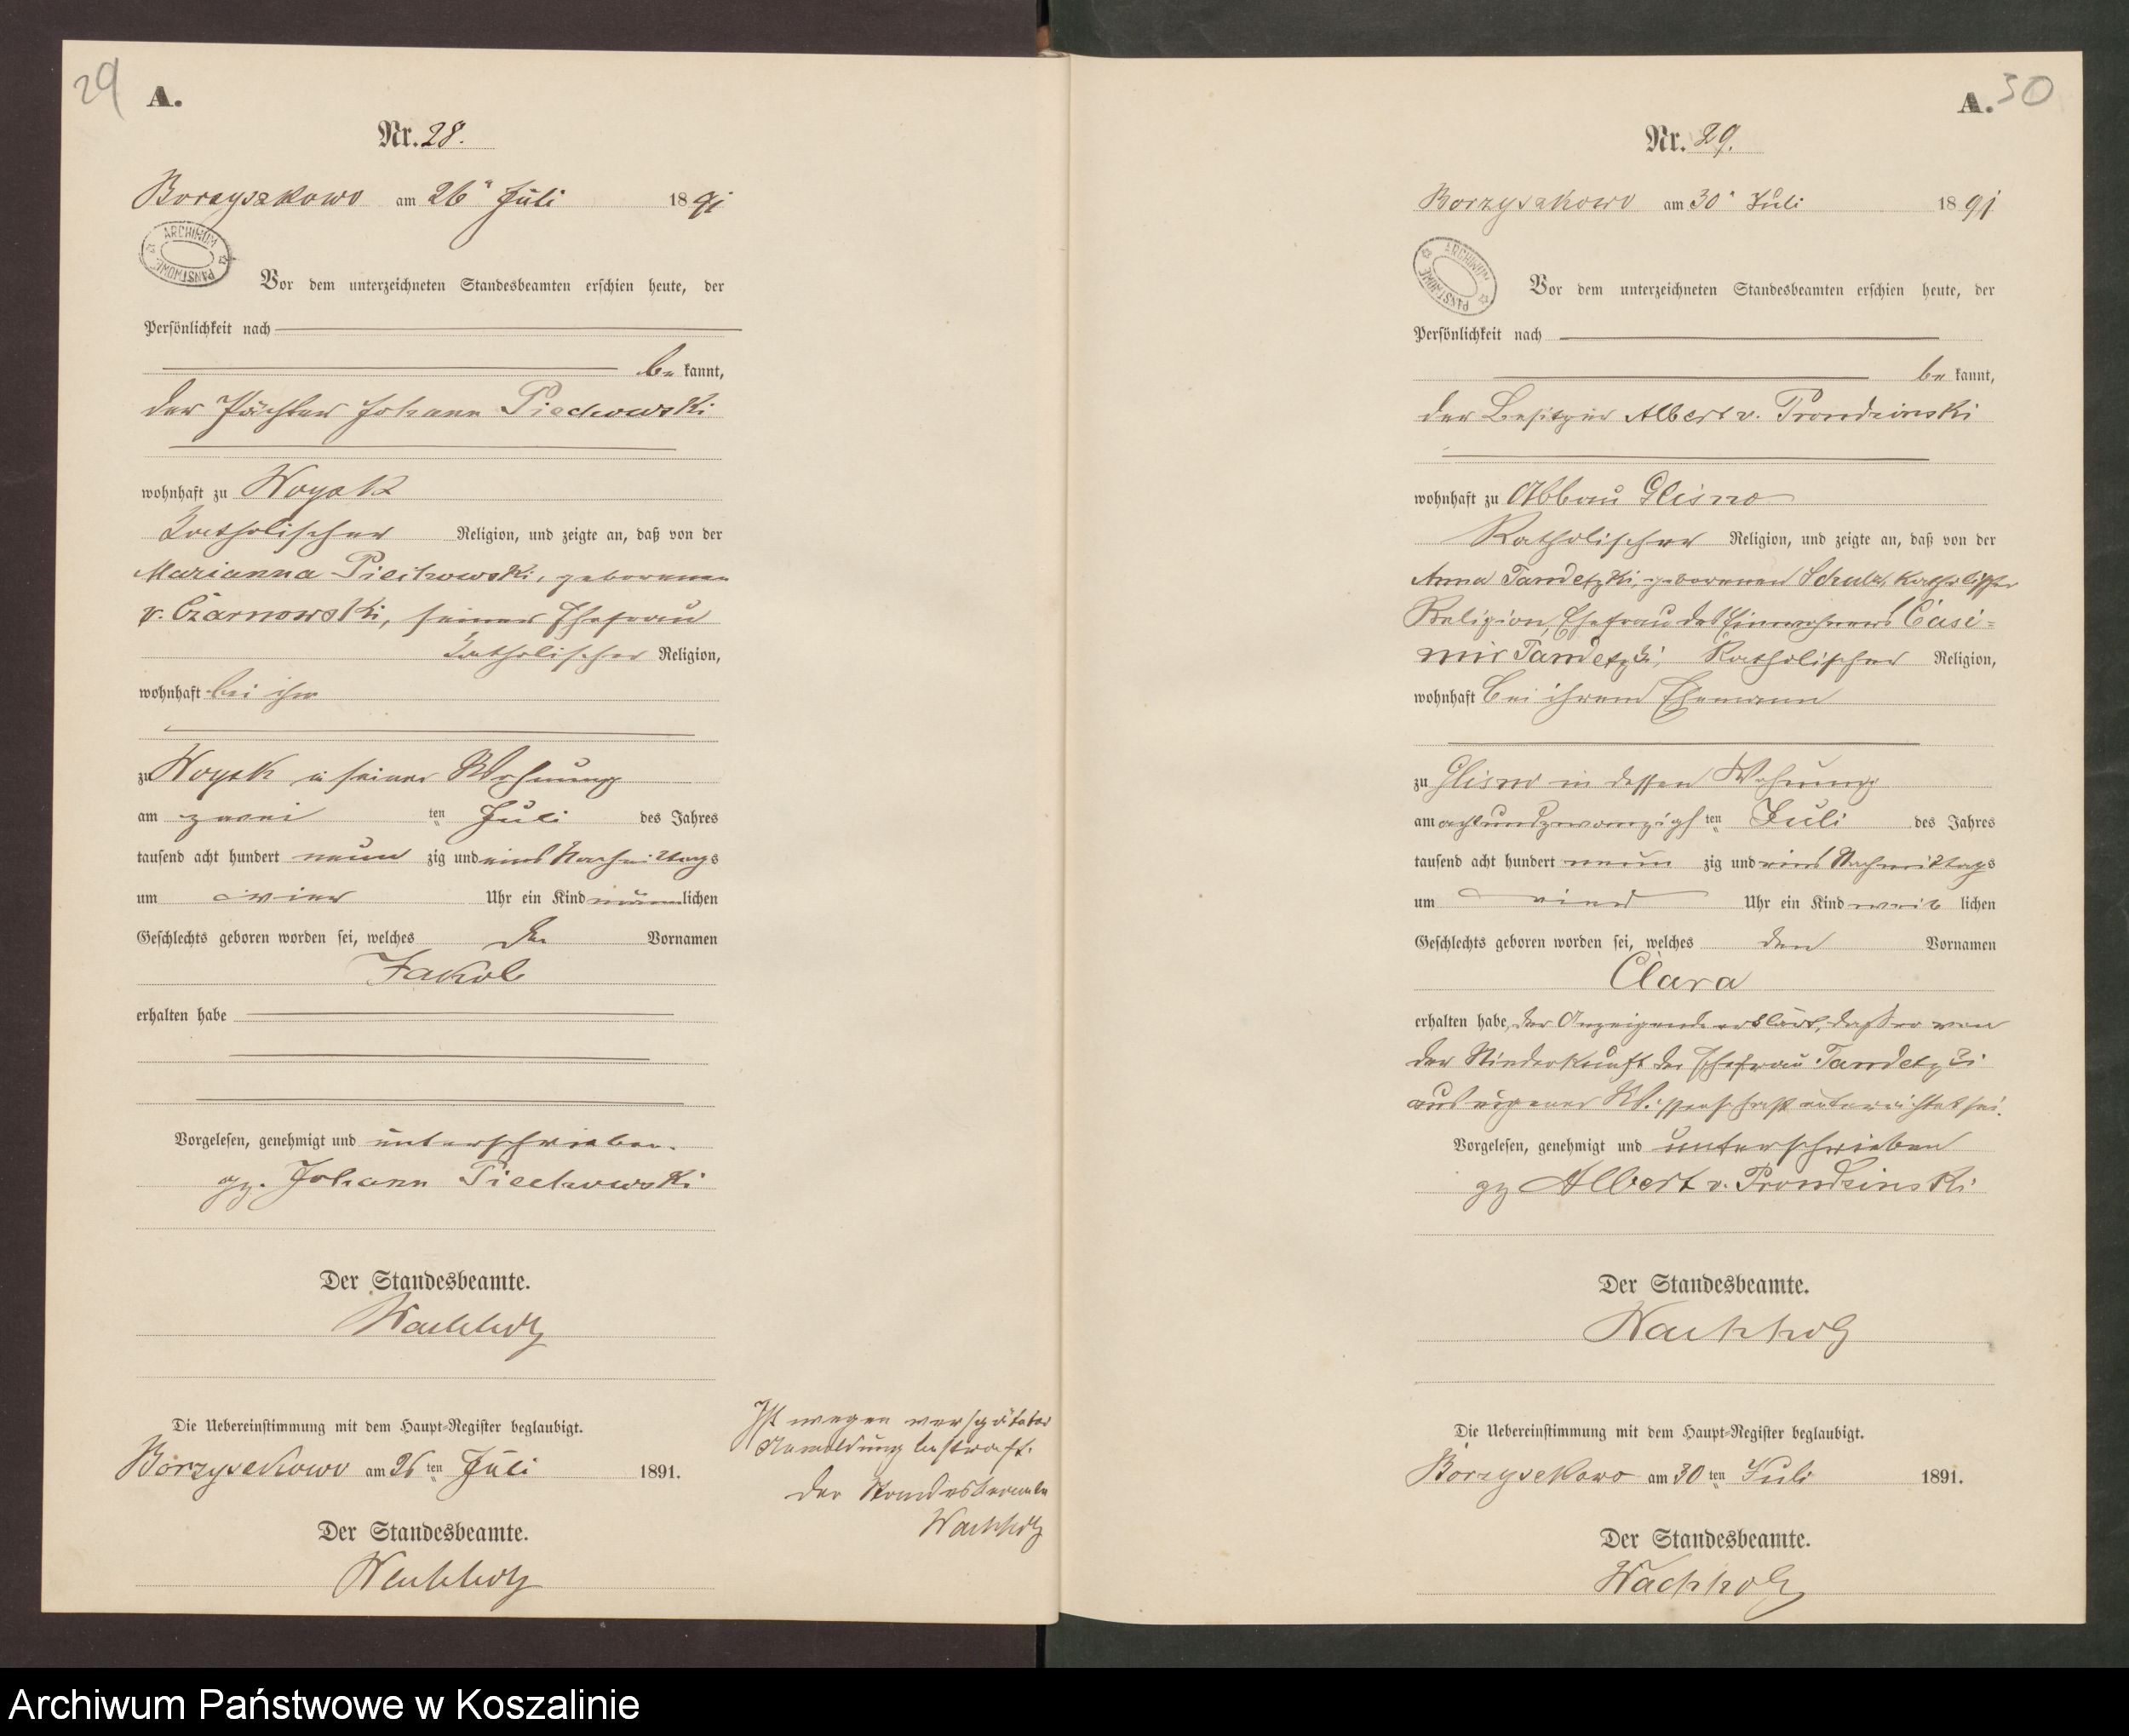 29
A.
Nr. 28.
Borzyszkowo am 26ⁿ Juli 1891
ARCHIWUM PAŃSTWOWE
Vor dem unterzeichneten Standesbeamten erschien heute, der
Persönlichkeit nach
be kannt,
der Pächter Johann Piechowski
wohnhaft zu Woysk
katholischer Religion, und zeigte an, daß von der
Marianna Piechowski, geborenen
v. Czarnowski, seiner Ehefrau
katholischer Religion,
wohnhaft bei ihm
zu Woysk in seiner Wohnung
am zwei ten Juli des Jahres
tausend acht hundert neun zig und eins Nachmittags
um vier Uhr ein Kind männlichen
Geschlechts geboren worden sei, welches den Vornamen
Jakob
erhalten habe
Vorgelesen, genehmigt und unterschrieben.
gz. Johann Piechowski
Der Standesbeamte.
Wachholz
Die Uebereinstimmung mit dem Haupt-Register beglaubigt.
Borzyszkowo am 26 ten Juli 1891.
Der Standesbeamte.
Wachholz
Ist wegen verspäteter
Anmeldung bestraft.
Der Standesbeamte
Wachholz
A. 30
Nr. 29.
Borzyszkowo am 30ⁿ Juli 1891
ARCHIWUM PAŃSTWOWE
Vor dem unterzeichneten Standesbeamten erschien heute, der
Persönlichkeit nach
be kannt,
der Besitzer Albert v. Prondzinski
wohnhaft zu Abbau Glisno
Katholischer Religion, und zeigte an, daß von der
Anna Tandetzki, geborenen Schulz, katholischer
Religion, Ehefrau des Einwohners Casi-
mir Tandetzki, Katholischer Religion,
wohnhaft bei ihrem Ehemann
zu Glisno in dessen Wohnung
am achtundzwanzigs ten Juli des Jahres
tausend acht hundert neun zig und eins Nachmittags
um vier Uhr ein Kind weib lichen
Geschlechts geboren worden sei, welches den Vornamen
Clara
erhalten habe, der Anzeigende erklärt, daß er von
der Niederkunft der Ehefrau Tandetzki
aus eigener Wissenschaft unterrichtet sei.
Vorgelesen, genehmigt und unterschrieben
gz Albert v. Prondzinski
Der Standesbeamte.
Wachholz
Die Uebereinstimmung mit dem Haupt-Register beglaubigt.
Borzyszkowo am 30 ten Juli 1891.
Der Standesbeamte.
Wachholz
Archiwum Państwowe w Koszalinie